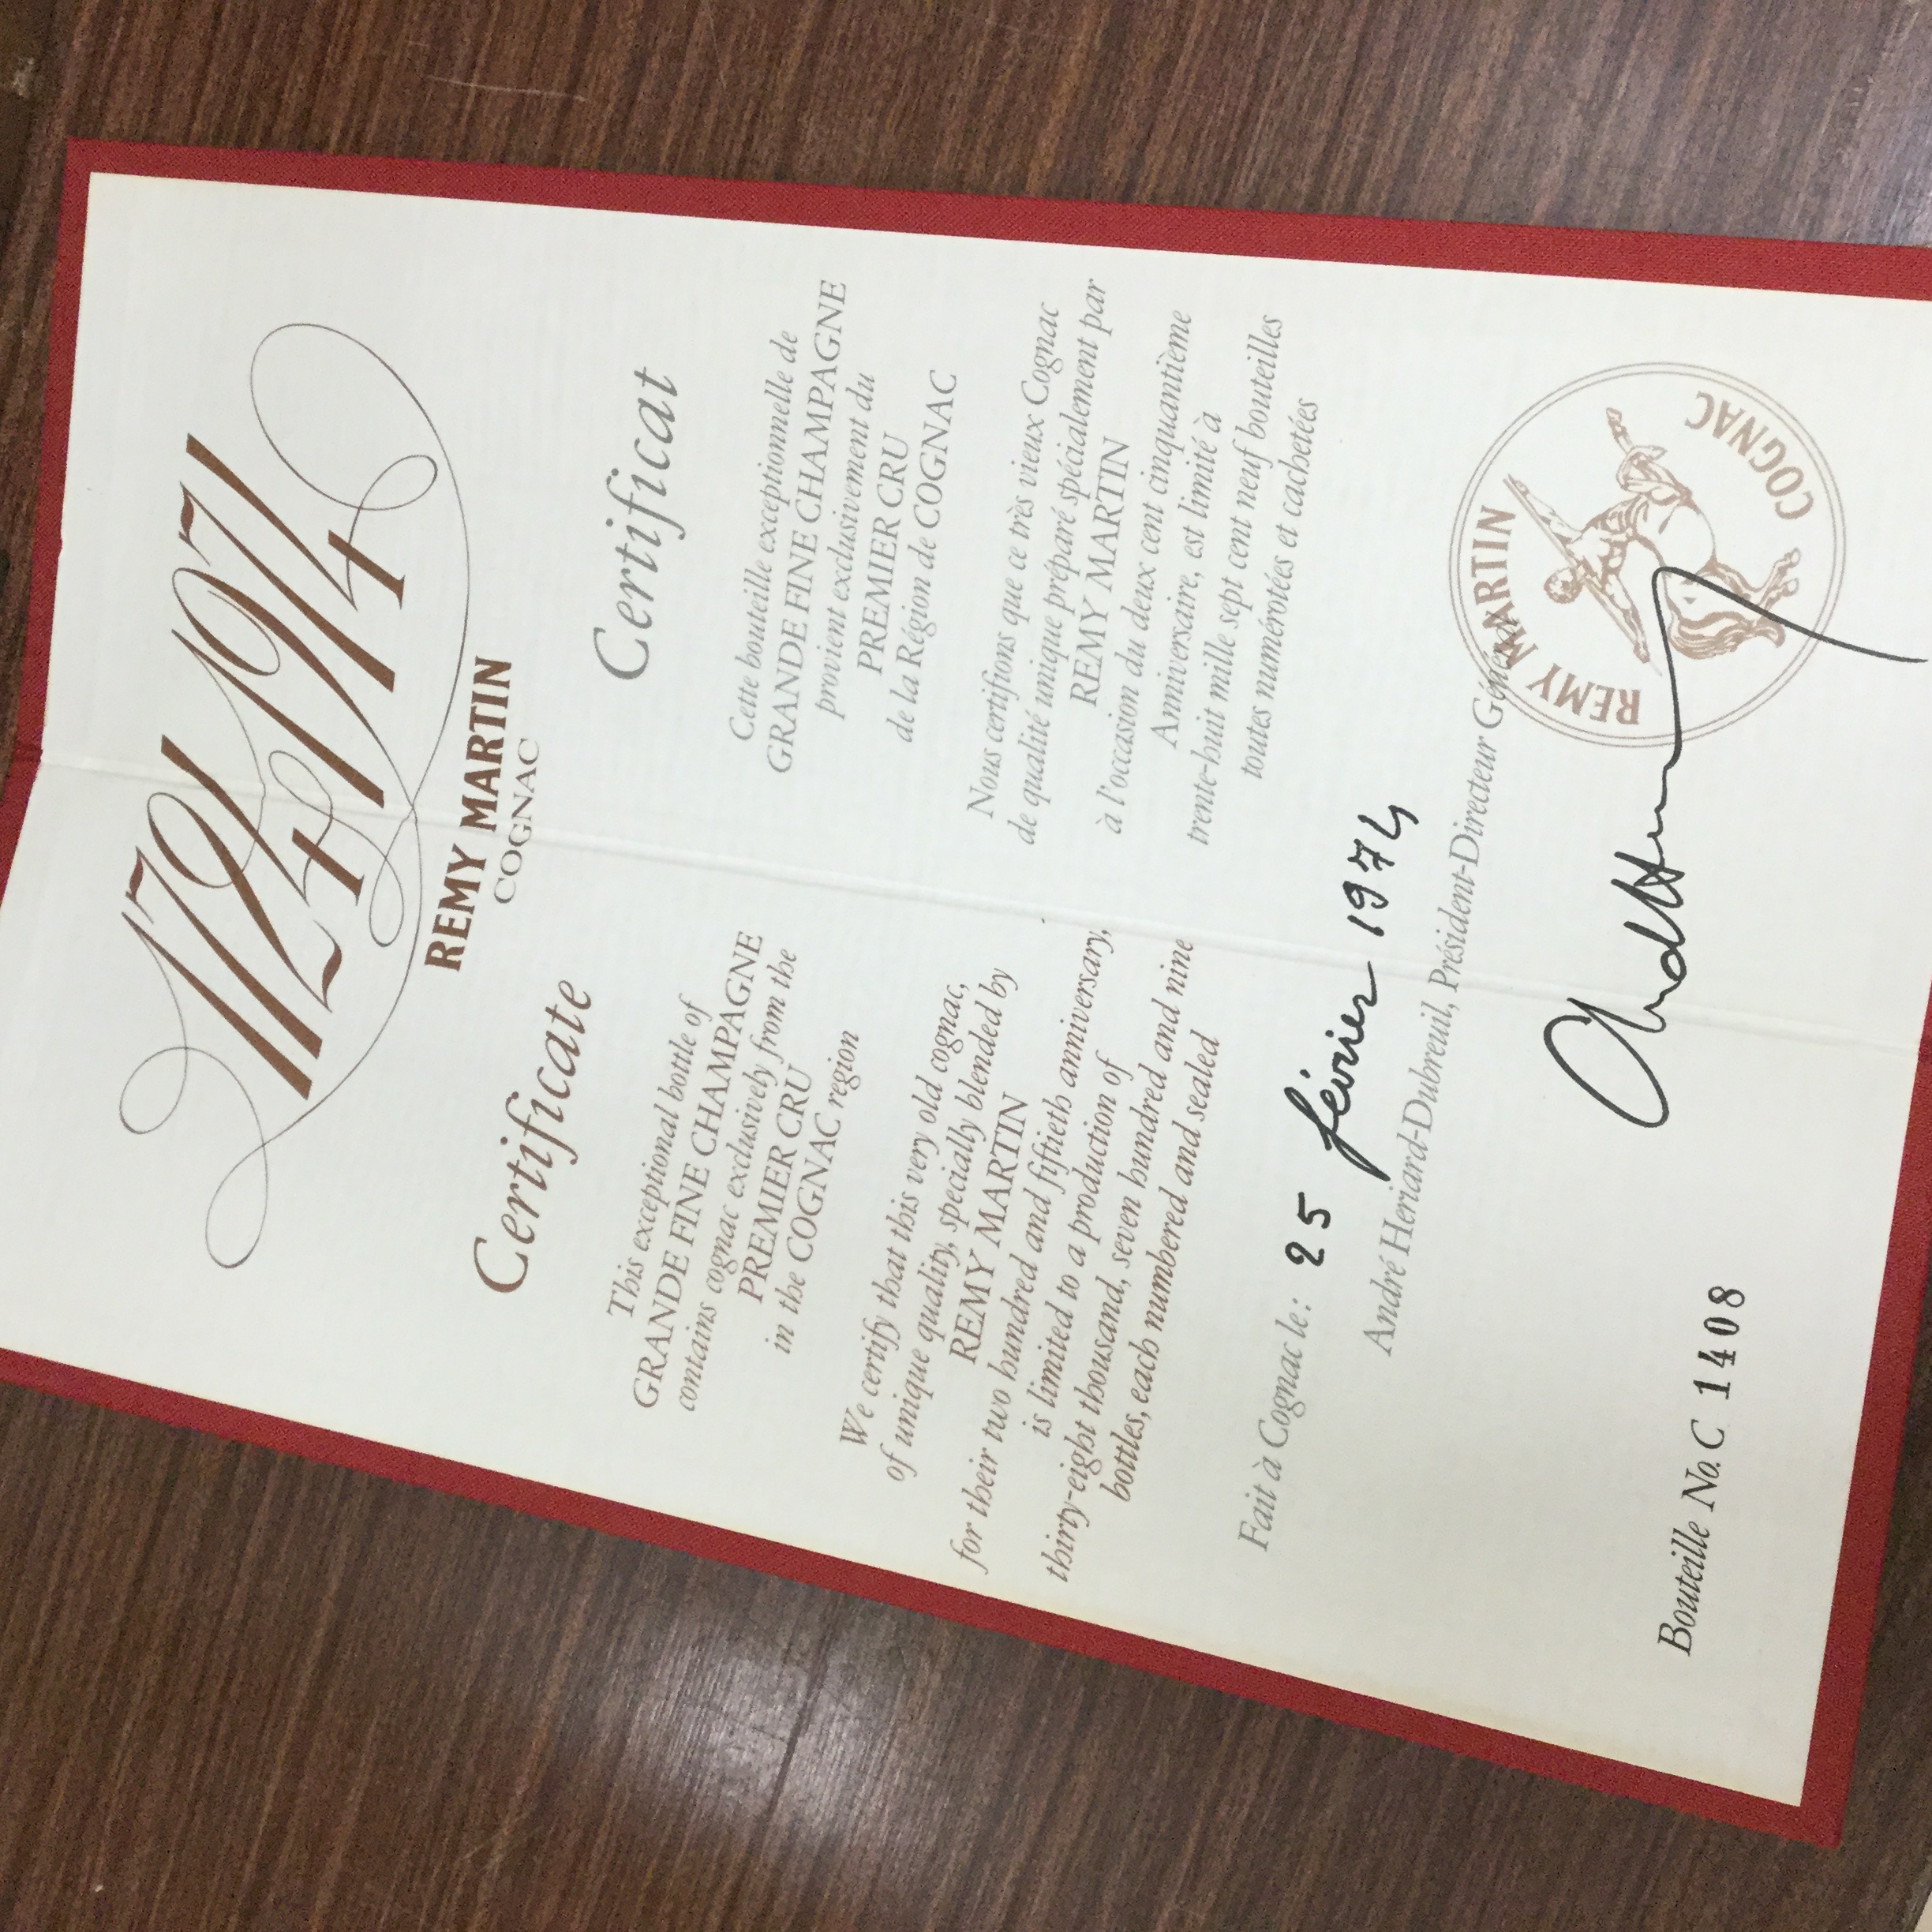 1724 1974
REMY MARTIN
COGNAC
Certificate
This exceptional bottle of
GRANDE FINE CHAMPAGNE
contains cognac exclusively from the
PREMIER CRU
in the COGNAC region
We certify that this very old cognac,
of unique quality, specially blended by
REMY MARTIN
for their two hundred and fiftieth anniversary,
is limited to a production of
thirty-eight thousand, seven hundred and nine
bottles, each numbered and sealed
Certificat
Cette bouteille exceptionnelle de
GRANDE FINE CHAMPAGNE
provient exclusivement du
PREMIER CRU
de la Région de COGNAC
Nous certifions que ce très vieux Cognac
de qualité unique préparé spécialement par
REMY MARTIN
à l'occasion du deux cent cinquantième
Anniversaire, est limité à
trente-huit mille sept cent neuf bouteilles
toutes numérotées et cachetées
Fait à Cognac le: 25 février 1974
André Heriard-Dubreuil, Président-Directeur Général
REMY MARTIN
COGNAC
Bouteille No. C 1408